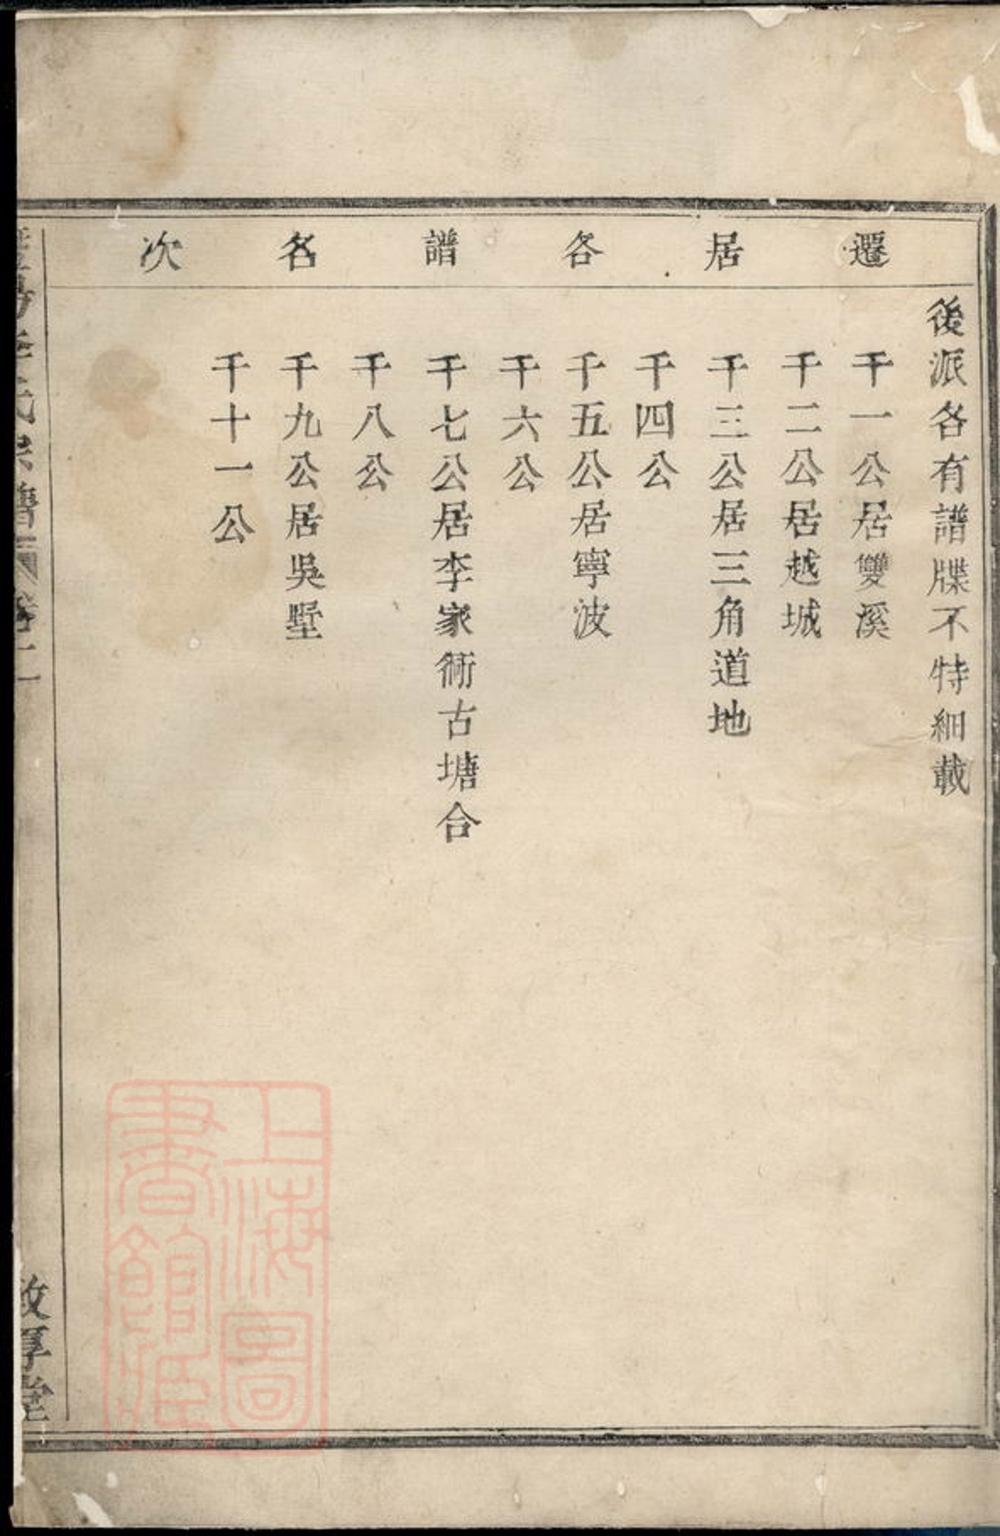 遷居各譜名次
後派各有譜牒不特細載
千一公居雙溪
千二公居越城
千三公居三角道地
千四公
千五公居寧波
千六公
千七公居李家衖古塘合
千八公
千九公居吳墅
千十一公
氏宗譜
敦厚堂
上海圖書館藏